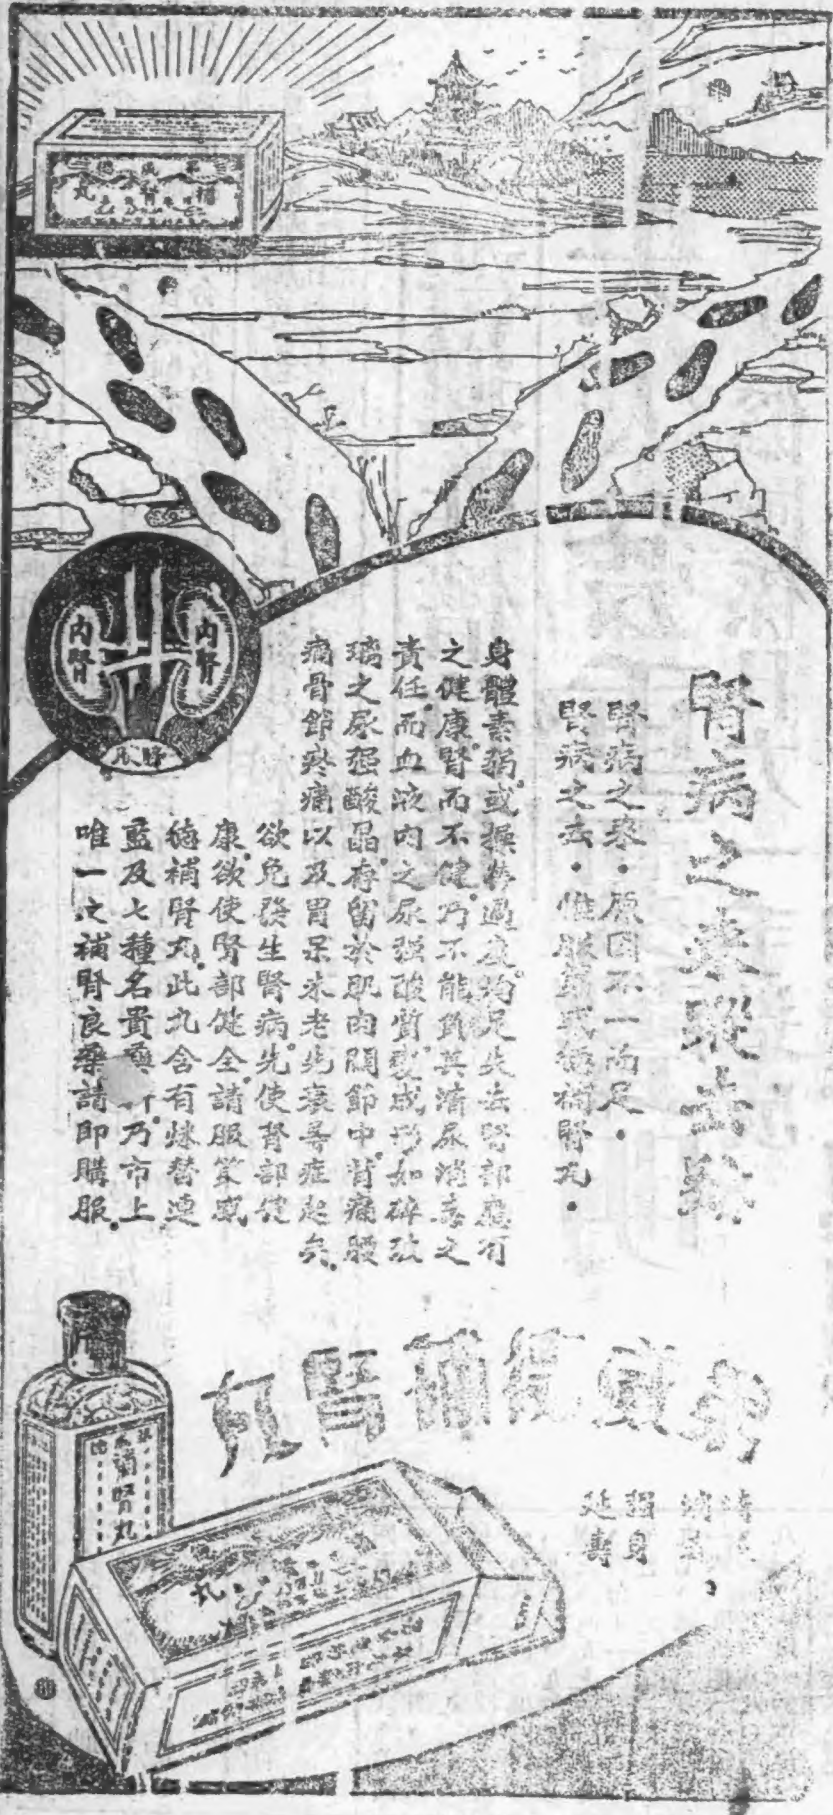 第威德
補腎丸
腎病之來蹤去跡
腎病之來．原因不一而足．
腎病之去．惟服第威德補腎丸．
身體素弱。或操勞過度。均足失去腎部應有
之健康。腎而不健。乃不能負其尿消毒之
責任。而血液內之尿强酸質。變成形如碎玻
璃之尿强酸晶。存留於肌肉關節中。背痛腰
痛骨節疼痛以及胃呆未老先衰等症起矣。
欲免發生腎病。先使腎部健
康。欲使腎部健全。請服第威
德補腎丸。此丸含有林替連
藍及七種名貴藥。乃市上
唯一之補腎良藥請即購服。
內腎
內腎
膀胱
第威德補腎丸
強身
延壽
補腎丸